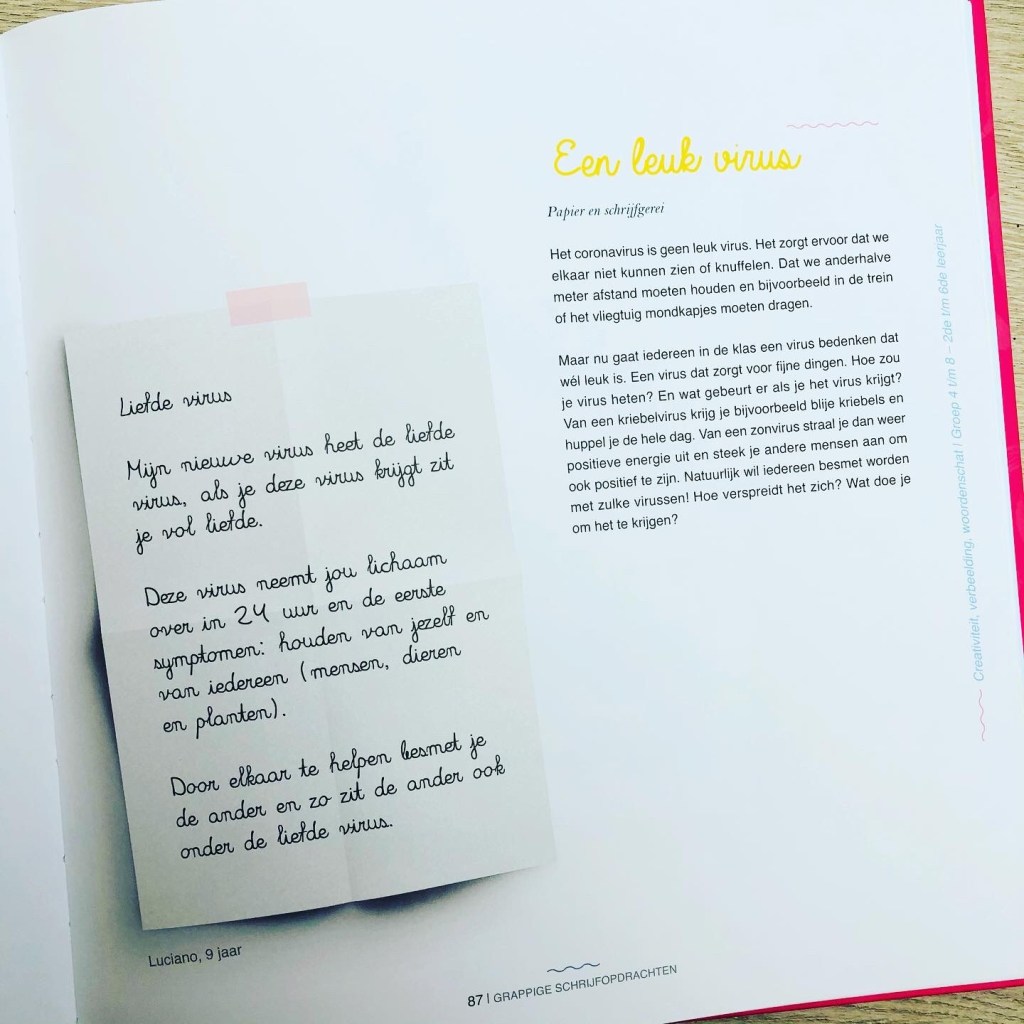 Liefde virus
Mijn nieuwe virus heet de liefde
virus, als je deze virus krijgt zit
je vol liefde.
Deze virus neemt jou lichaam
over in 24 uur en de eerste
symptomen: houden van jezelf en
van iedereen (mensen, dieren
en planten).
Door elkaar te helpen besmet je
de ander en zo zit de ander ook
onder de liefde virus.
Luciano, 9 jaar
Een leuk virus
Papier en schrijfgerei
Het coronavirus is geen leuk virus. Het zorgt ervoor dat we
elkaar niet kunnen zien of knuffelen. Dat we anderhalve
meter afstand moeten houden en bijvoorbeeld in de trein
of het vliegtuig mondkapjes moeten dragen.
Maar nu gaat iedereen in de klas een virus bedenken dat
wél leuk is. Een virus dat zorgt voor fijne dingen. Hoe zou
je virus heten? En wat gebeurt er als je het virus krijgt?
Van een kriebelvirus krijg je bijvoorbeeld blije kriebels en
huppel je de hele dag. Van een zonvirus straal je dan weer
positieve energie uit en steek je andere mensen aan om
ook positief te zijn. Natuurlijk wil iedereen besmet worden
met zulke virussen! Hoe verspreidt het zich? Wat doe je
om het te krijgen?
Creativiteit, verbeelding, woordenschat | Groep 4 t/m 8 – 2de t/m 6de leerjaar
87 | GRAPPIGE SCHRIJFOPDRACHTEN